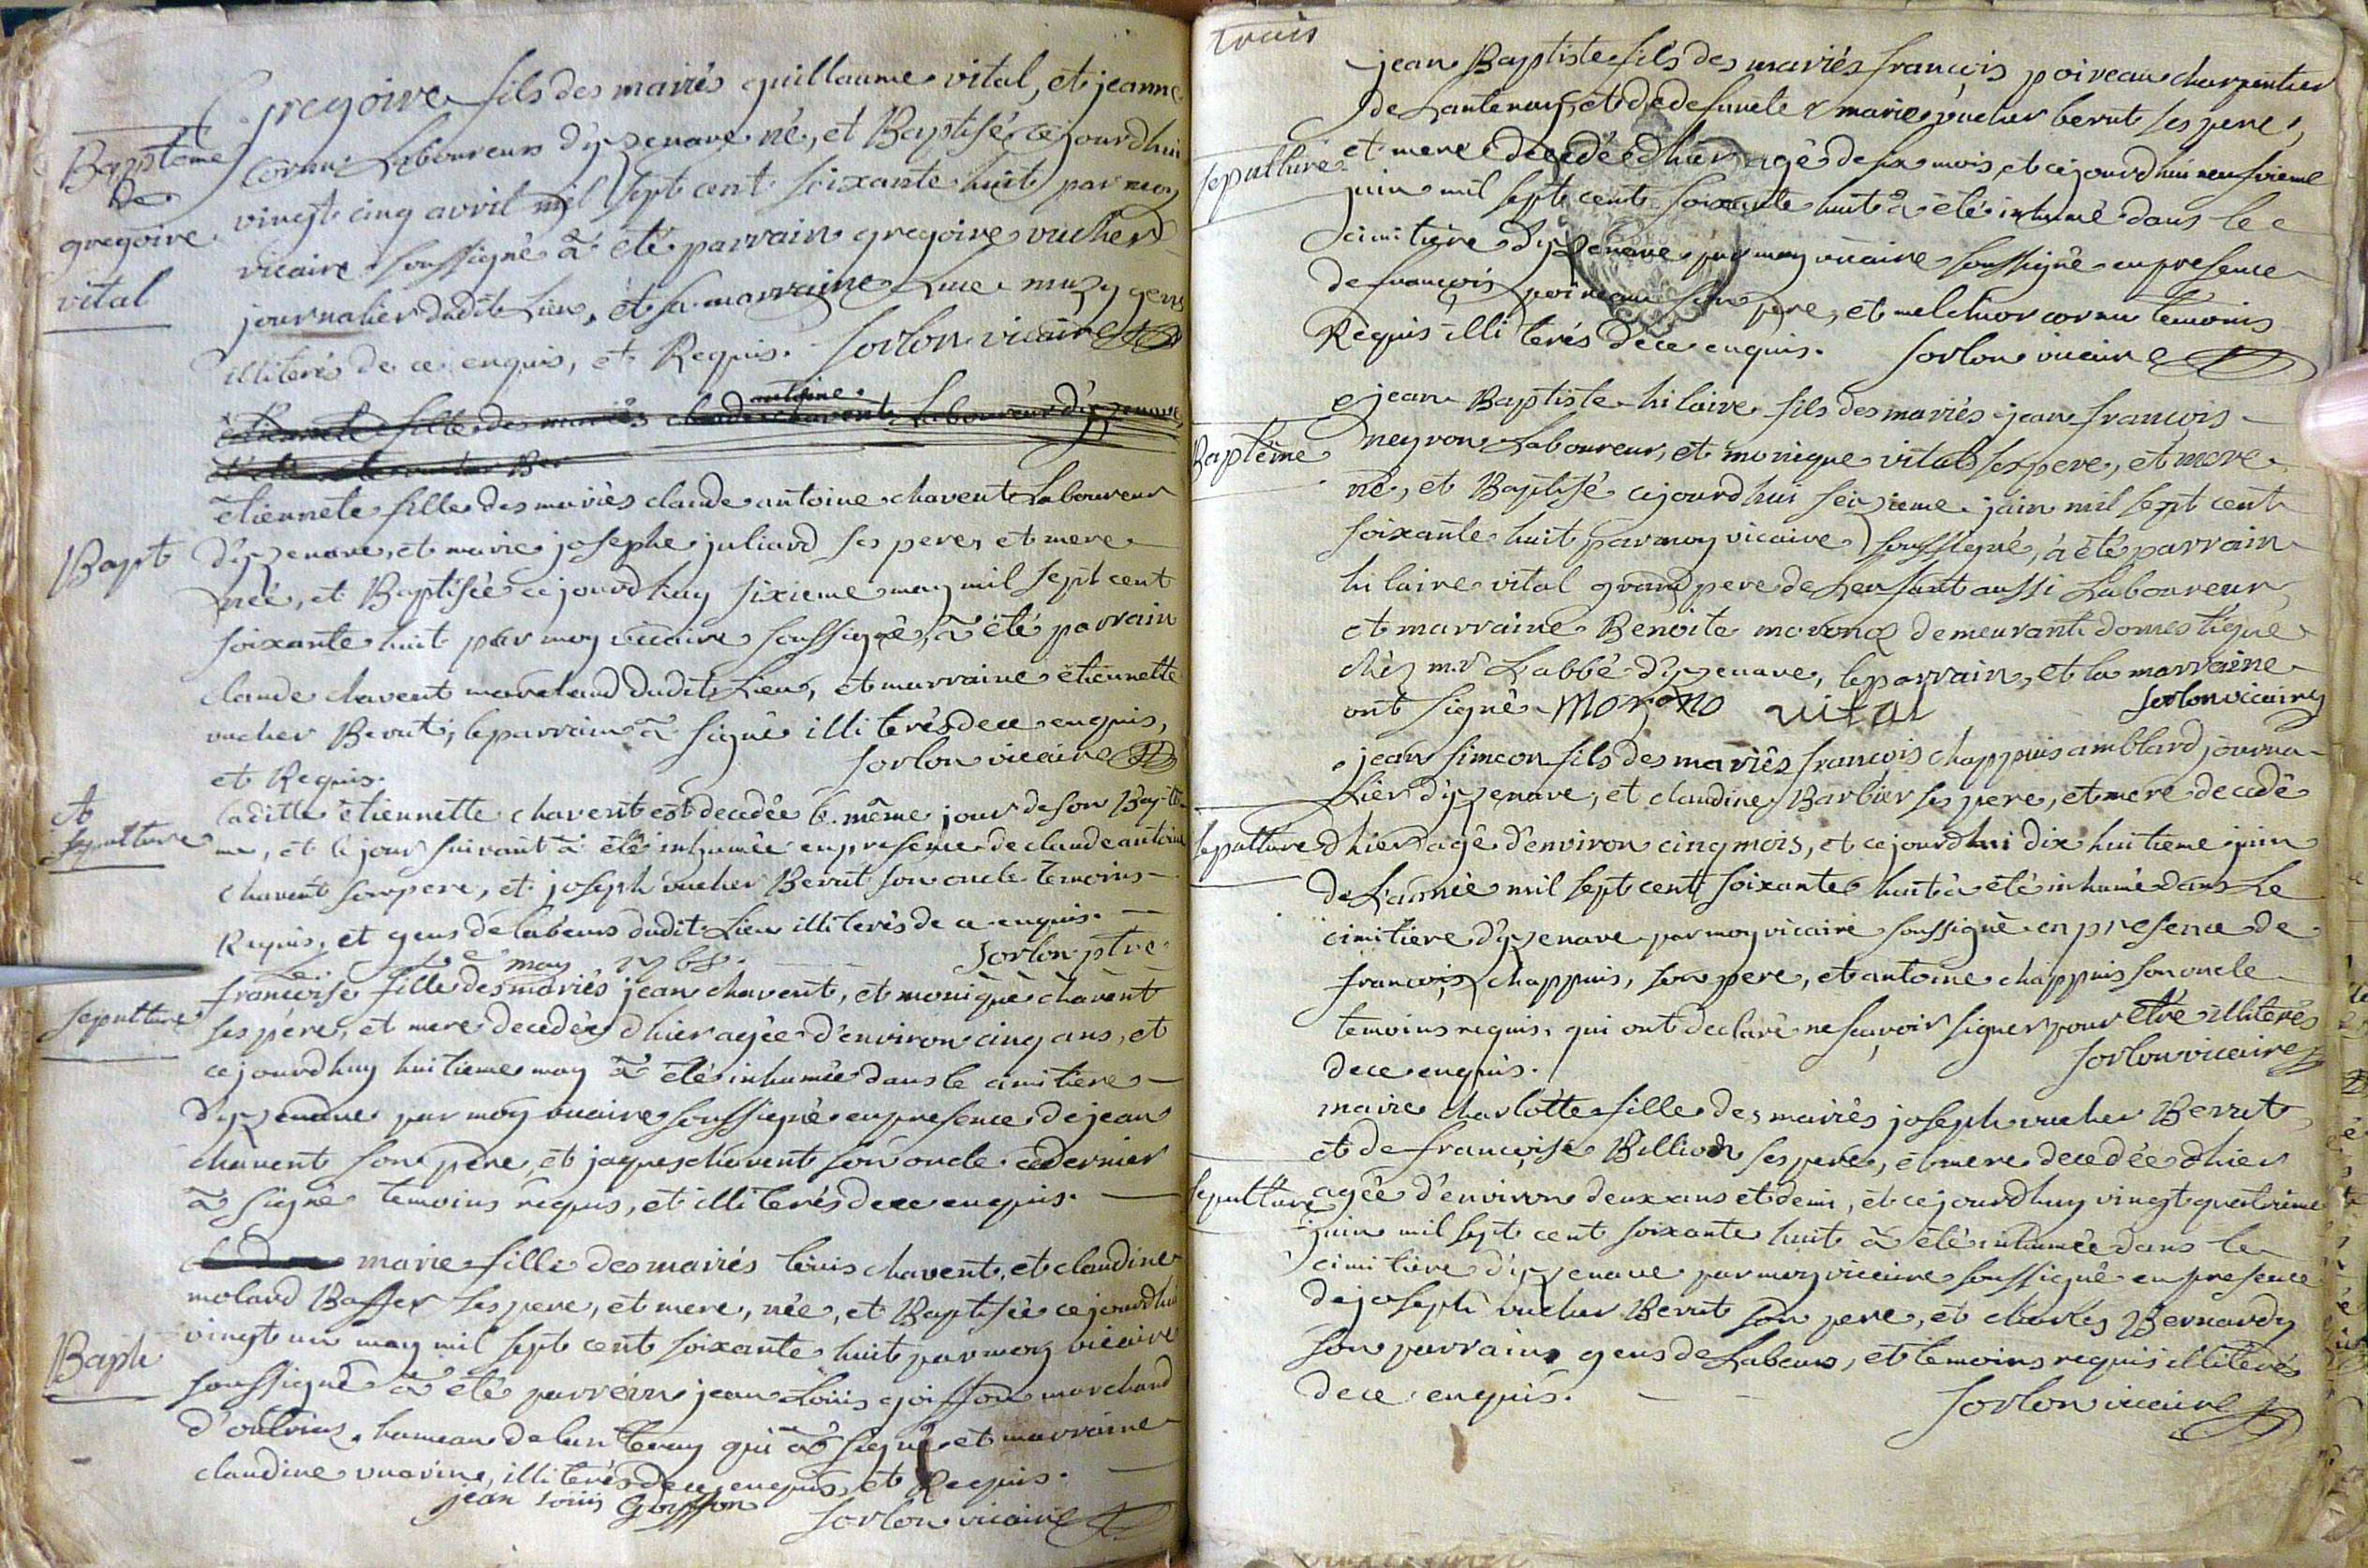 Baptême
de
gregoire
vital
Gregoire fils des mariés guillaume vital, et jeanne
cornu Laboureurs d'izenave né, et Baptisé cejourdhui
vingt cinq avril mil sept cent soixante huit par moy
vicaire soussigné à été parrain gregoire vucher
journalier dudit Lieu, et sa marraine Luce muzy gens
illiterés de ce enquis, et Requis. sorlon vicaire
antoine
étiennete fille des mariés claude chavent Laboureur d'izenave
Bapt
étiennete fille des mariés claude antoine chavent Laboureur
d'izenave, et marie josephe juliard ses pere, et mere
née, et Baptisée cejourdhuy sixieme may mil sept cent
soixante huit par moy vicaire soussigné, à été parrain
claude chavent marchand dudit Lieu, et marraine étiennette
vucher Berut, le parrain à signé illiterés de ce enquis,
et Requis. sorlon vicaire
et
sepulture
laditte étiennette chavent est decedée le même jour de son Bapte-
me, et le jour suivant à été inhumée en presence de claude antoine
chavent son pere, et joseph vucher Berut son oncle temoins
Requis, et gens de labeurs dudit Lieu illiterés de ce enquis.
may 1768. sorlon ptre
sepulture
francoise fille des mariés jean chavent, et monique chavent
ses pere, et mere decedée dhier agée d'environ cinq ans, et
cejourdhuy huitieme may à été inhumée dans le cimitiere
d'izenave par moy vicaire soussigné en presence de jean
chavent son pere, et jaques chavent son oncle ce dernier
à signé temoins requis, et illiterés de ce enquis.
Bapt
marie fille des mariés louis chavent, et claudine
molard Basser ses pere, et mere, née, et Baptisée cejourdhui
vingt un may mil sept cent soixante huit par moy vicaire
soussigné à été parrein jean Louis goiffon marchand
hameau de lantenay qui à signé et marraine
claudine illiterés de ce enquis, et Requis.
jean louis Goiffon
sorlon vicaire
trois
sepulture
jean Baptiste fils des mariés françois poiveau charpentier
de Lantenay, et de defunte marie vucher berut ses pere,
et mere decedé dhier agé de six mois, et cejourdhui neufvieme
juin mil sept cent soixante huit à été inhumé dans le
cimitiere d'izenave par moy vicaire soussigné en presence
de françois poiveau son pere, et melchior cornu temoins
Requis illiterés de ce enquis. sorlon vicaire
Baptême
jean Baptiste hilaire fils des mariés jean françois
neyron Laboureur, et monique vital ses pere, et mere
né, et Baptisé cejourdhui seizieme juin mil sept cent
soixante huit par moy vicaire soussigné, à été parrain
hilaire vital grand pere de Lenfant aussi Laboureur,
et marraine Benoite demeurant domestique
chés mr Labbé d'izenave, le parrain, et la marraine
ont signé vital sorlon vicaire
sepulture
jean simeon fils des mariés françois chappuis amblard journa-
Lier d'izenave, et claudine Barbier ses pere, et mere decedé
dhier agé d'environ cinq mois, et cejourdhui dix huitieme juin
de Lannée mil sept cent soixante huit à été inhumé dans Le
cimitiere d'izenave par moy vicaire soussigné en presence de
françois chappuis, son pere, et antoine chappuis son oncle
temoins requis, qui ont declaré ne sçavoir signer pour être illiterés
de ce enquis. sorlon vicaire
sepulture
marie charlotte fille des mariés joseph vucher Berrut
et de françoise Billion ses pere, et mere decedée dhier
agée d'environ deux ans et demi, et cejourdhuy vingt quatrieme
juin mil sept cent soixante huit à été inhumée dans le
cimitiere d'izenave par moy vicaire soussigné en presence
de joseph vucher Berut son pere, et charles Bernardy
son parrain, gens de Labeurs, et temoins requis illiterés
de ce enquis. sorlon vicaire